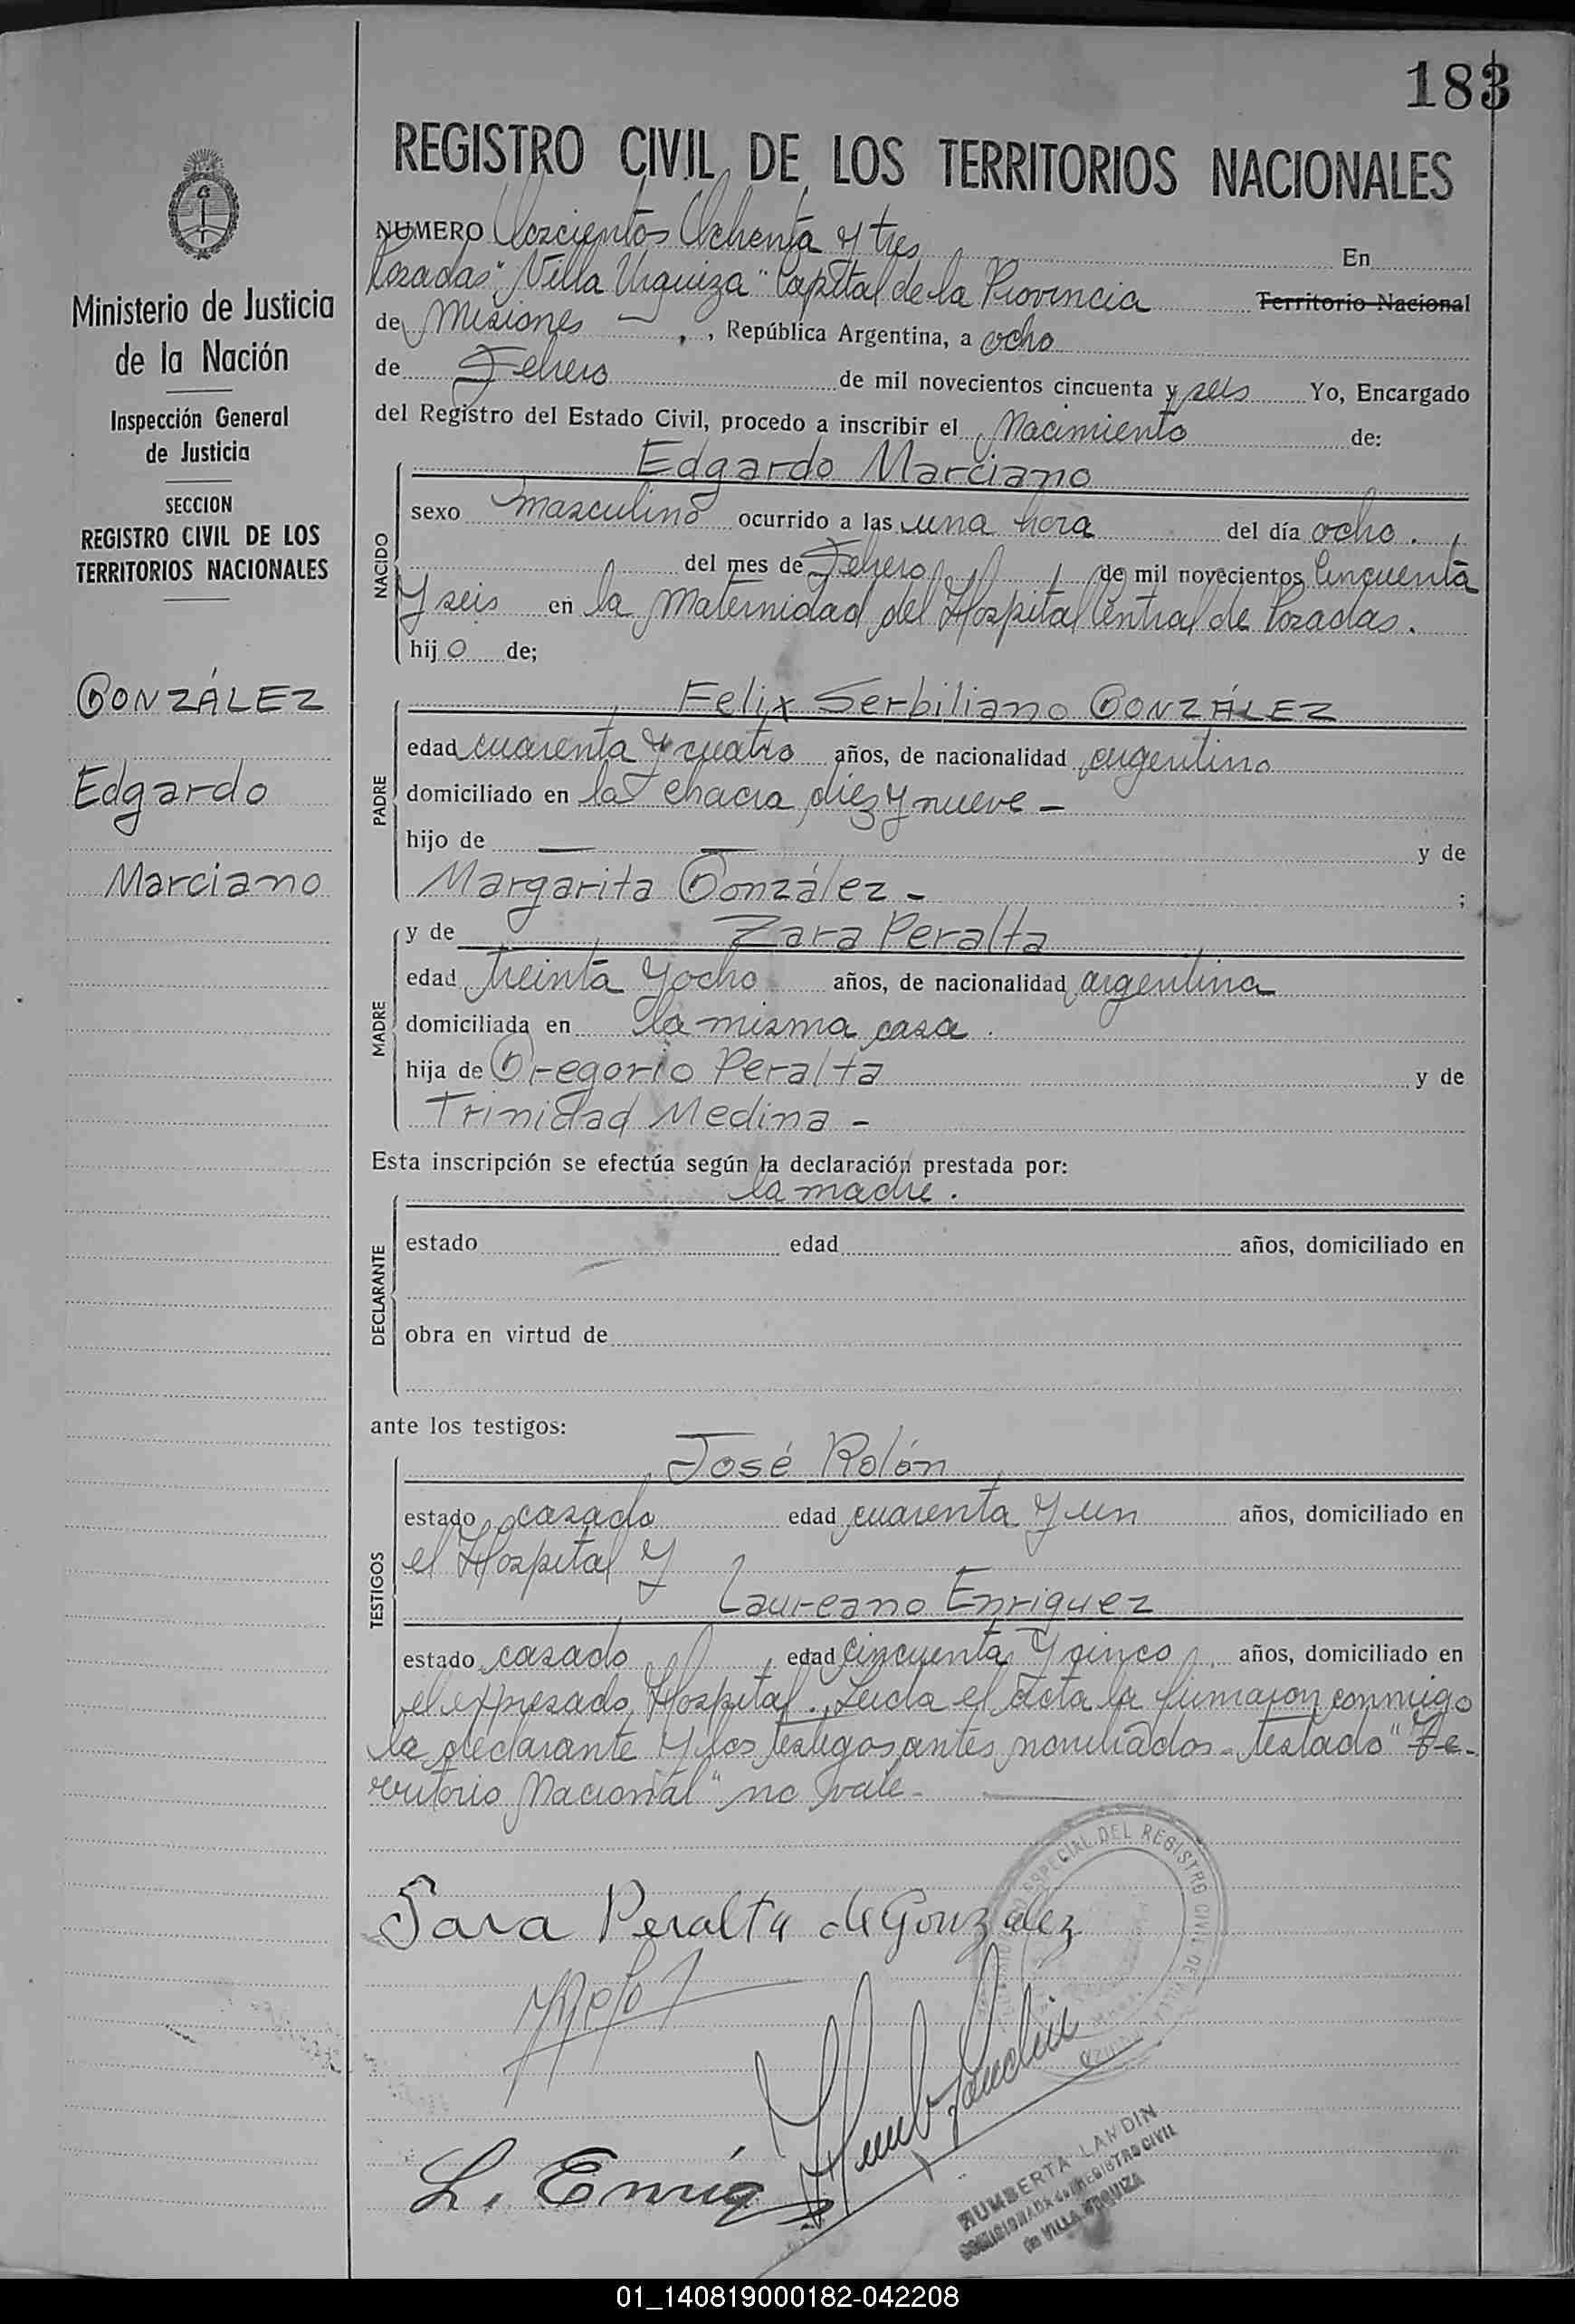 183
REGISTRO CIVIL DE LOS TERRITORIOS NACIONALES
Ministerio de Justicia
de la Nación
Inspección General
de Justicia
SECCION
REGISTRO CIVIL DE LOS
TERRITORIOS NACIONALES
GONZÁLEZ
Edgardo
Marciano
NUMERO Doscientos Ochenta y tres En
Posadas "Villa Urquiza" Capital de la Provincia Territorio Nacional
de Misiones — , República Argentina, a ocho
de Febrero de mil novecientos cincuenta y seis Yo, Encargado
del Registro del Estado Civil, procedo a inscribir el Nacimiento de:
NACIDO
Edgardo Marciano
sexo masculino ocurrido a las una hora del día ocho.
del mes de Febrero de mil novecientos Cincuenta
y seis en la Maternidad del Hospital Central de Posadas.
hijo de;
PADRE
Felix Serbiliano GONZÁLEZ
edad cuarenta y cuatro años, de nacionalidad argentino
domiciliado en la chacra diez y nueve —
hijo de — — y de
Margarita González - ;
MADRE
y de Zara Peralta
edad treinta y ocho años, de nacionalidad argentina
domiciliada en la misma casa.
hija de Gregorio Peralta y de
Trinidad Medina -
Esta inscripción se efectúa según la declaración prestada por:
DECLARANTE
la madre.
estado edad años, domiciliado en
obra en virtud de
ante los testigos:
TESTIGOS
José Rolón
estado casado edad cuarenta y un años, domiciliado en
el Hospital y
Laureano Enriquez
estado casado edad cincuenta y cinco años, domiciliado en
el expresado Hospital. Leida el acta la firmaron conmigo
la declarante y los testigos antes nombrados - testado "Te-
rritorio Nacional" no vale -
Sara Peralta de González
ESPECIAL DEL REGISTRO CIVIL DE VILLA URQUIZA
L. Enriq
HUMBERTA LANDIN
COMISIONADA del REGISTRO CIVIL
de VILLA URQUIZA
01_140819000182-042208